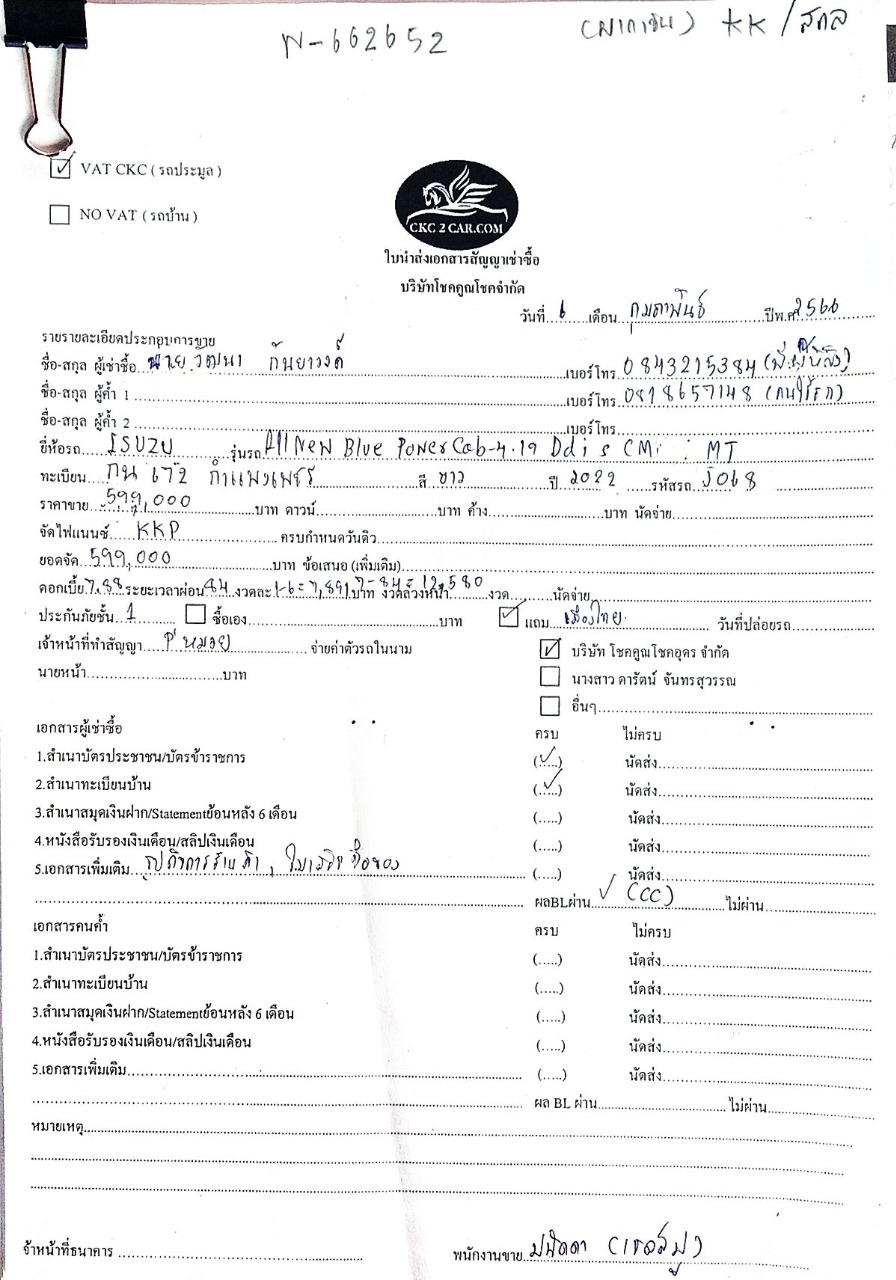 N-662652 KK / สกล
☑ VAT CKC ( รถประมูล )
☐ NO VAT ( รถบ้าน )
CKC 2 CAR.COM
ใบนำส่งเอกสารสัญญาเช่าซื้อ
บริษัทโชคคูณโชคจำกัด
วันที่ 6 เดือน กุมภาพันธ์ ปีพ.ศ 2566
รายรายละเอียดประกอบการขาย
ชื่อ-สกุล ผู้เช่าซื้อ นาย วัฒนา กันยาวงค์ เบอร์โทร 0843215384
ชื่อ-สกุล ผู้ค้ำ 1 เบอร์โทร 0818657148 (คนใช้รถ)
ชื่อ-สกุล ผู้ค้ำ 2 เบอร์โทร
ยี่ห้อรถ ISUZU รุ่นรถ All New Blue Power Cab-4 1.9 Ddi S MT
ทะเบียน กน 672 กำแพงเพชร สี ขาว ปี 2022 รหัสรถ J068
ราคาขาย 599,000 บาท ดาวน์ บาท ค้าง บาท นัดจ่าย
จัดไฟแนนซ์ KKP ครบกำหนดวันคิว
ยอดจัด 599,000 บาท ข้อเสนอ (เพิ่มเติม)
ดอกเบี้ย 7.88 ระยะเวลาผ่อน 84 งวดละ 1-6 = 7,891 7-84 = 12,580 บาท งวดล่วงหน้า งวด นัดจ่าย
ประกันภัยชั้น 1 ☐ ซื้อเอง บาท ☑ แถม เมืองไทย วันที่ปล่อยรถ
เจ้าหน้าที่ทำสัญญา P'หมวย จ่ายค่าตัวรถในนาม ☑ บริษัท โชคคูณโชคอุดร จำกัด
นายหน้า บาท ☐ นางสาว ดารัตน์ จันทรสุวรรณ
☐ อื่นๆ
เอกสารผู้เช่าซื้อ ครบ ไม่ครบ
1.สำเนาบัตรประชาชน/บัตรข้าราชการ (✓) นัดส่ง
2.สำเนาทะเบียนบ้าน (✓) นัดส่ง
3.สำเนาสมุดเงินฝาก/Statementย้อนหลัง 6 เดือน (.....) นัดส่ง
4.หนังสือรับรองเงินเดือน/สลิปเงินเดือน (.....) นัดส่ง
5.เอกสารเพิ่มเติม รูปกิจการร้านค้า , ใบเสร็จซื้อของ (.....) นัดส่ง
ผลBLผ่าน ✓ (CCC) ไม่ผ่าน
เอกสารคนค้ำ ครบ ไม่ครบ
1.สำเนาบัตรประชาชน/บัตรข้าราชการ (.....) นัดส่ง
2.สำเนาทะเบียนบ้าน (.....) นัดส่ง
3.สำเนาสมุดเงินฝาก/Statementย้อนหลัง 6 เดือน (.....) นัดส่ง
4.หนังสือรับรองเงินเดือน/สลิปเงินเดือน (.....) นัดส่ง
5.เอกสารเพิ่มเติม (.....) นัดส่ง
ผล BL ผ่าน ไม่ผ่าน
หมายเหตุ
จ้าหน้าที่ธนาคาร พนักงานขาย ปนัดดา